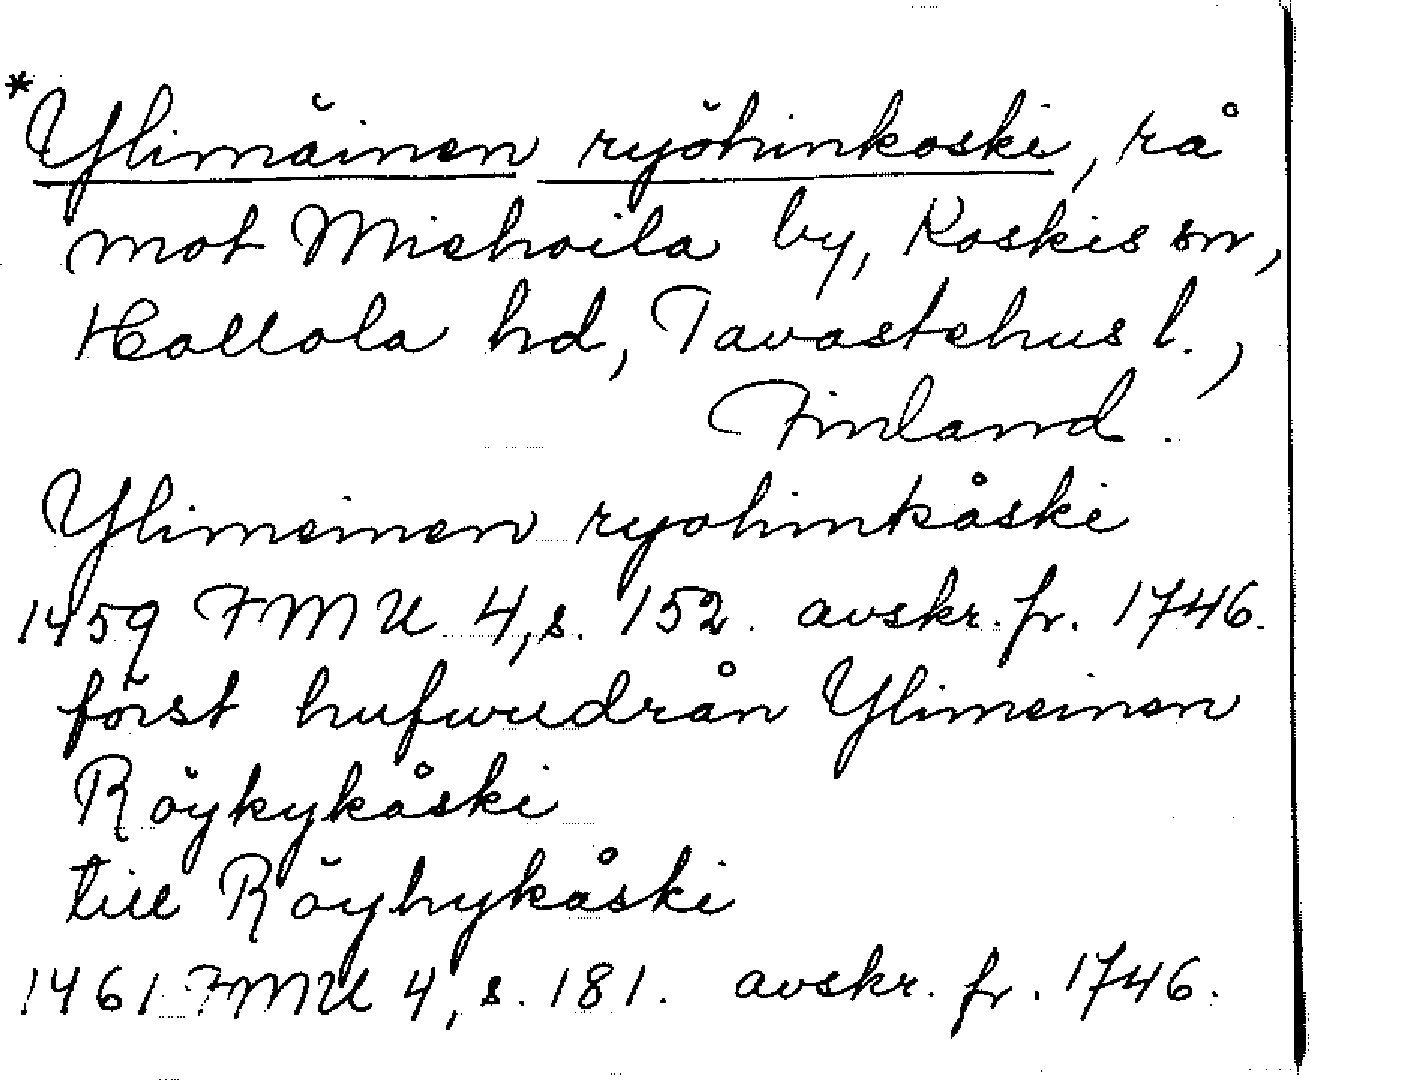 *Ylimäinen ryöhinkoski, rå
mot Miehoila by, Koskis sn,
Hollola hd, Tavastehus l.,
Finland.
Ylimeinen ryohinkåski
1459 FMU 4, s. 152. avskr. fr. 1746.
först hufwudrån Ylimeinen
Röykykåski
till Röyhykåski
1461 FMU 4, s. 181. avskr. fr. 1746.